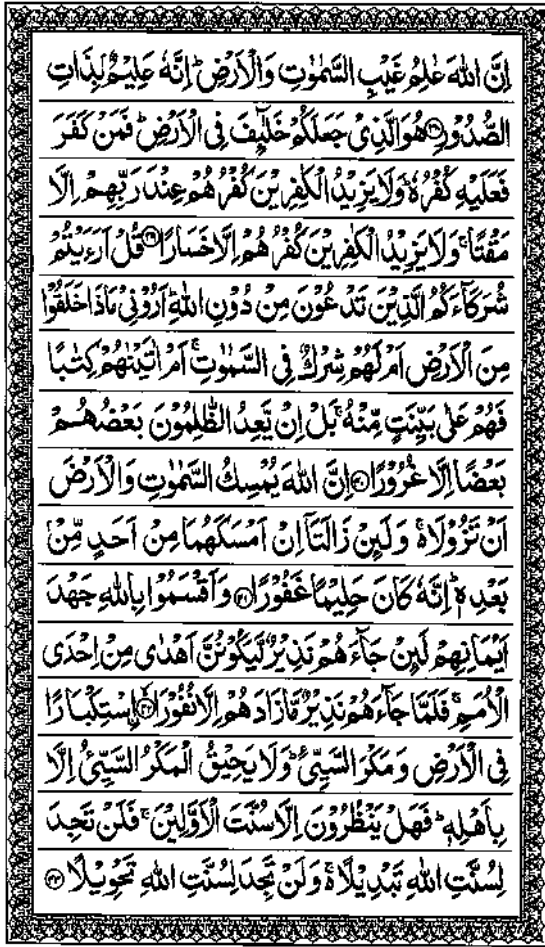 اِنَّ اللّٰهَ عٰلِمُ غَيْبِ السَّمٰوٰتِ وَالْاَرْضِ ؕ اِنَّهٗ عَلِيْمٌۢ بِذَاتِ
الصُّدُوْرِ ﴿۳۸﴾ هُوَالَّذِىْ جَعَلَكُمْ خَلٰٓئِفَ فِى الْاَرْضِ ؕ فَمَنْ كَفَرَ
فَعَلَيْهِ كُفْرُهٗ ؕ وَلَا يَزِيْدُ الْكٰفِرِيْنَ كُفْرُهُمْ عِنْدَ رَبِّهِمْ اِلَّا
مَقْتًا ۚ وَلَا يَزِيْدُ الْكٰفِرِيْنَ كُفْرُهُمْ اِلَّا خَسَارًا ﴿۳۹﴾ قُلْ اَرَءَيْتُمْ
شُرَكَآءَكُمُ الَّذِيْنَ تَدْعُوْنَ مِنْ دُوْنِ اللّٰهِ ؕ اَرُوْنِىْ مَاذَا خَلَقُوْا
مِنَ الْاَرْضِ اَمْ لَهُمْ شِرْكٌ فِى السَّمٰوٰتِ ۚ اَمْ اٰتَيْنٰهُمْ كِتٰبًا
فَهُمْ عَلٰى بَيِّنَتٍ مِّنْهُ ۚ بَلْ اِنْ يَّعِدُ الظّٰلِمُوْنَ بَعْضُهُمْ
بَعْضًا اِلَّا غُرُوْرًا ﴿۴۰﴾ اِنَّ اللّٰهَ يُمْسِكُ السَّمٰوٰتِ وَالْاَرْضَ
اَنْ تَزُوْلَا ۚ وَلَئِنْ زَالَتَاۤ اِنْ اَمْسَكَهُمَا مِنْ اَحَدٍ مِّنْۢ
بَعْدِهٖ ؕ اِنَّهٗ كَانَ حَلِيْمًا غَفُوْرًا ﴿۴۱﴾ وَاَقْسَمُوْا بِاللّٰهِ جَهْدَ
اَيْمَانِهِمْ لَئِنْ جَآءَهُمْ نَذِيْرٌ لَّيَكُوْنُنَّ اَهْدٰى مِنْ اِحْدَى
الْاُمَمِ ۚ فَلَمَّا جَآءَهُمْ نَذِيْرٌ مَّا زَادَهُمْ اِلَّا نُفُوْرًا ﴿۴۲﴾ اِسْتِكْبَارًا
فِى الْاَرْضِ وَمَكْرَ السَّيِّئِ ؕ وَلَا يَحِيْقُ الْمَكْرُ السَّيِّئُ اِلَّا
بِاَهْلِهٖ ؕ فَهَلْ يَنْظُرُوْنَ اِلَّا سُنَّتَ الْاَوَّلِيْنَ ۚ فَلَنْ تَجِدَ
لِسُنَّتِ اللّٰهِ تَبْدِيْلًا ۚ وَلَنْ تَجِدَ لِسُنَّتِ اللّٰهِ تَحْوِيْلًا ﴿۴۳﴾